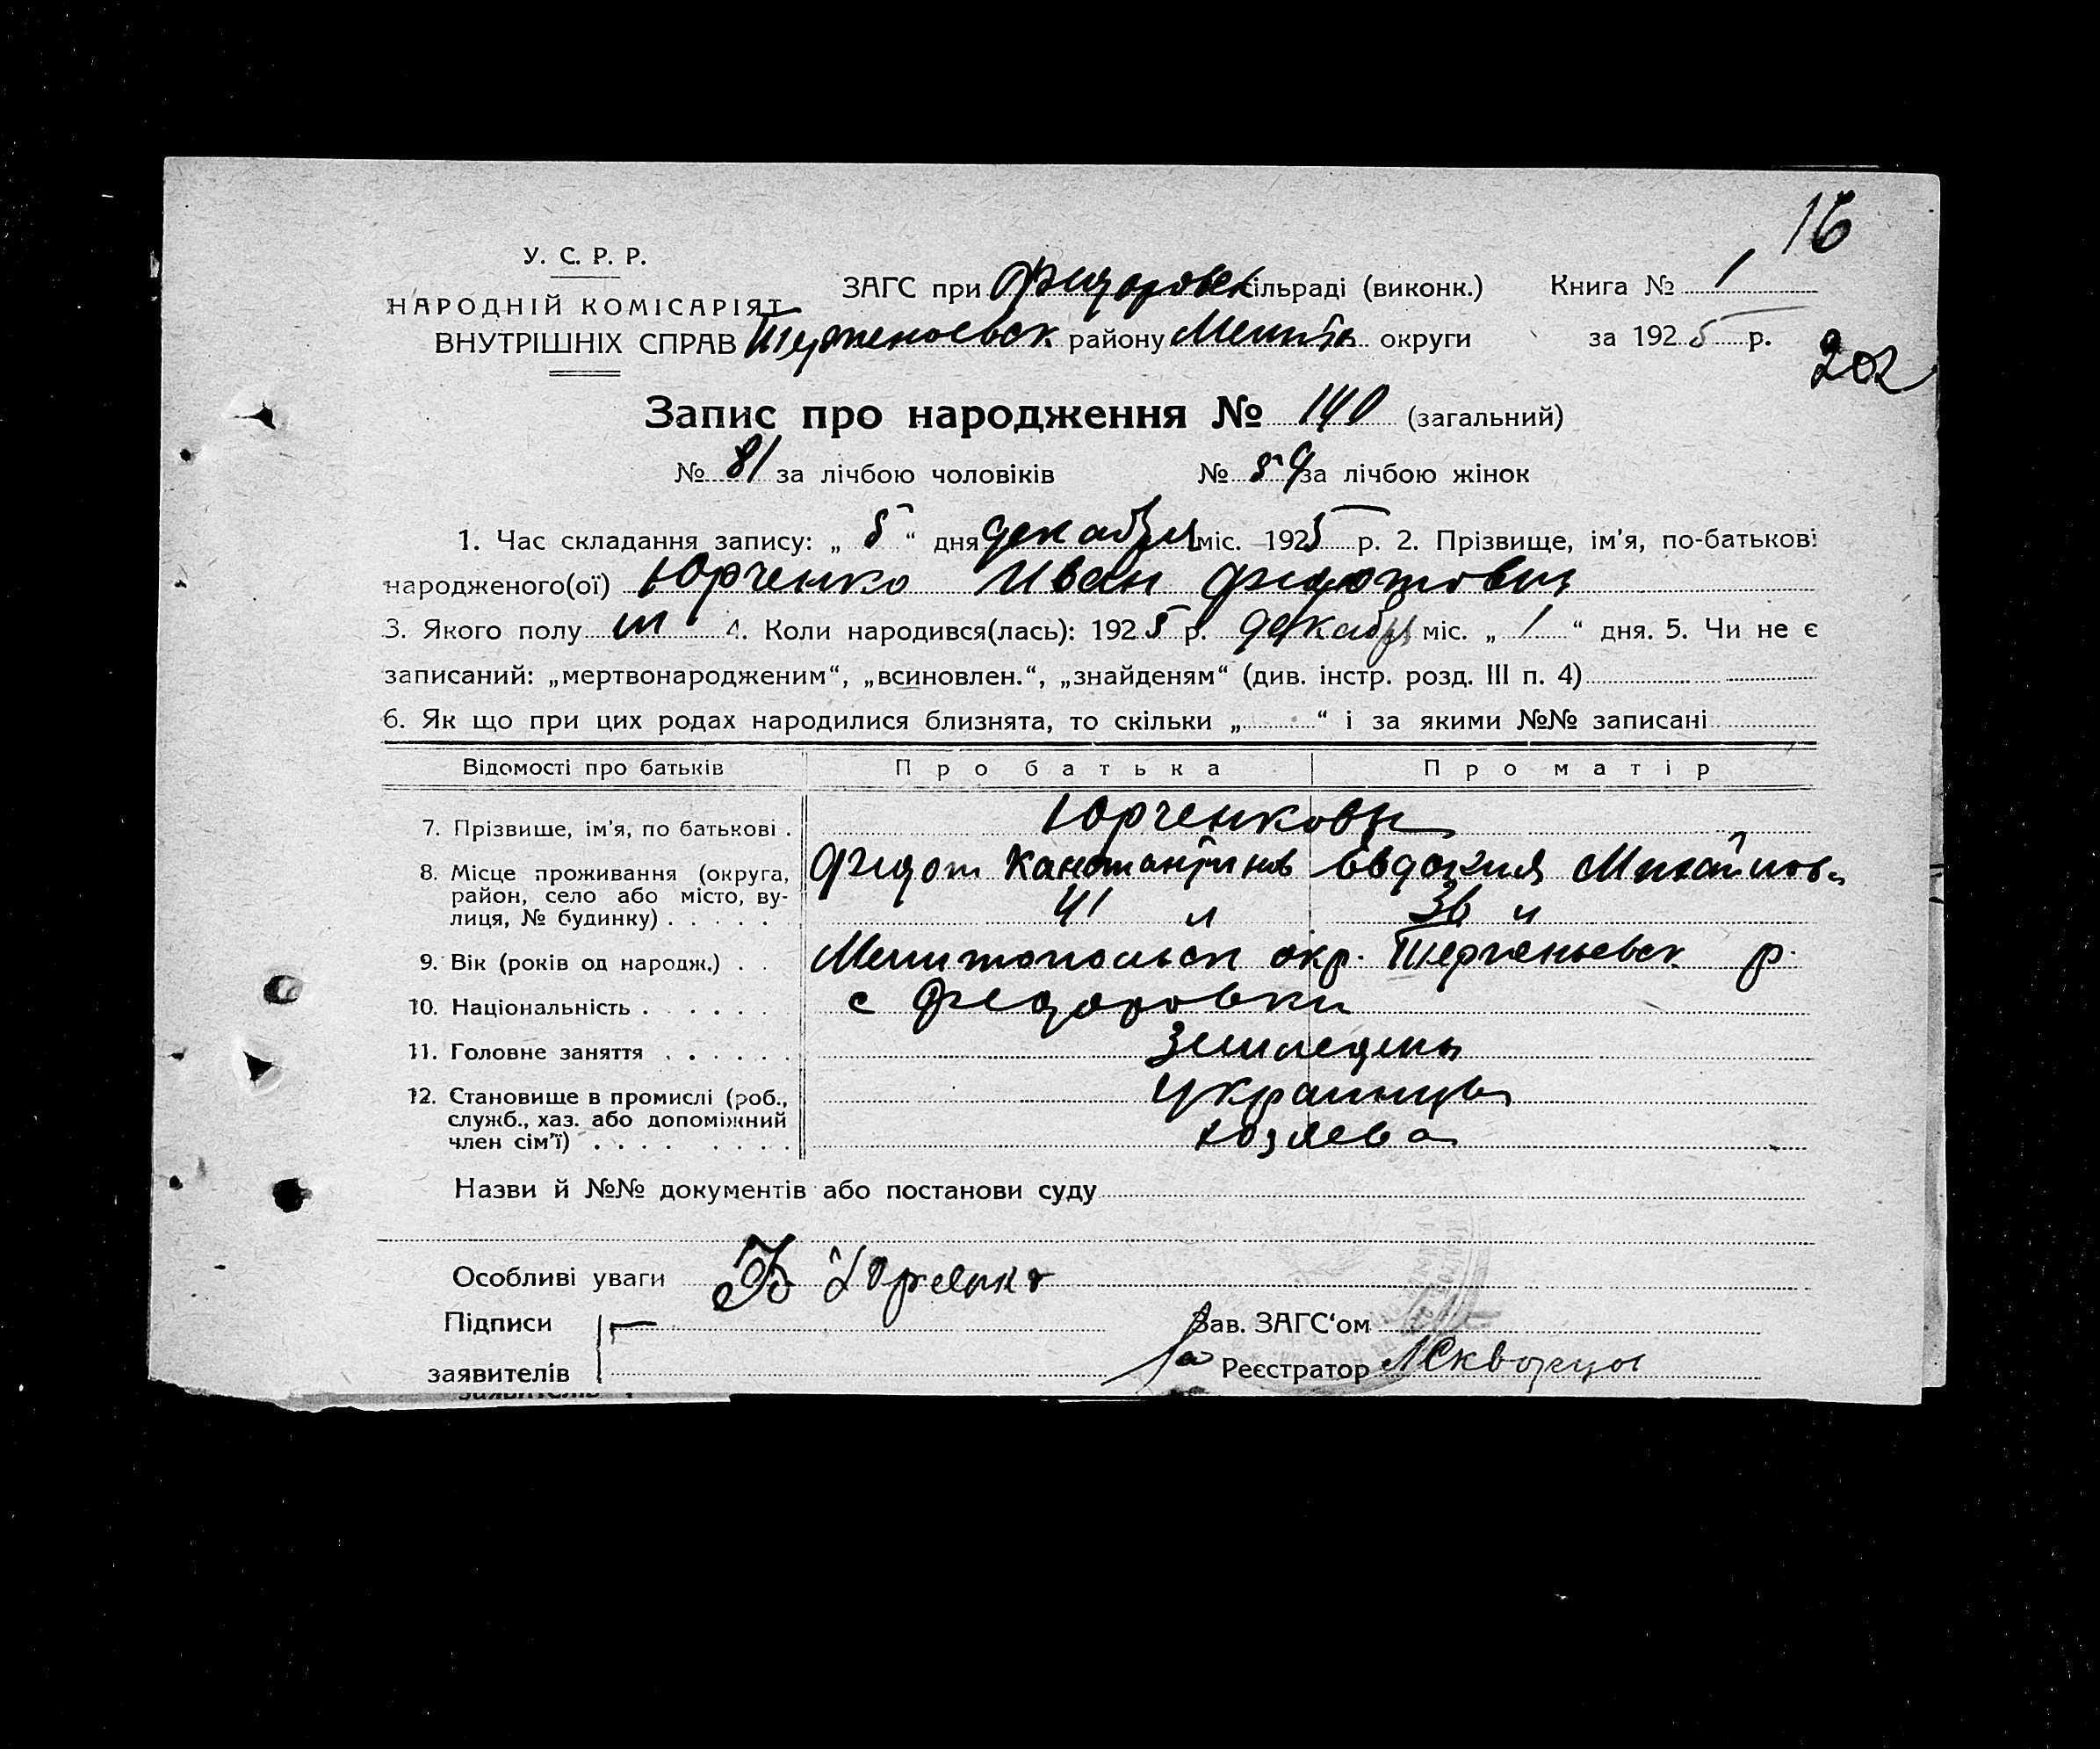 16
У. С. Р. Р.
НАРОДНІЙ КОМІСАРІЯТ
ВНУТРІШНІХ СПРАВ
ЗАГС при Федоровск сільраді (виконк.)
Книга № 1
Терпеньевск району Мелит. округи
за 1925 р.
202
Запис про народження № 140 (загальний)
№ 81 за лічбою чоловіків № 59 за лічбою жінок
1. Час складання запису: „ 5 “ дня декабря міс. 1925 р. 2. Прізвище, ім'я, по-батькові
народженого(ої) Юрченко Иван Федотович
3. Якого полу м 4. Коли народився(лась): 1925 р. декабря міс. „ 1 “ дня. 5. Чи не є
записаний: „мертвонародженим“, „всиновлен.“, „знайденям“ (див. інстр. розд. III п. 4)
6. Як що при цих родах народилися близнята, то скільки „ “ і за якими №№ записані
Відомості про батьків Про батька Про матір
7. Прізвише, ім'я, по батькові . Юрченковы
8. Місце проживання (округа, район, село або місто, ву-
лиця, № будинку) . . . . .
Федот Константинов Евдокия Михайлов.
41 л 36 л
9. Вік (років од народж.) . . Мелитопольск окр. Терпеньевск р.
10. Національність . . . . . . с Федоровки
11. Головне заняття . . . . . . Земледельц
12. Становище в промислі (роб.,
служб., хаз. або допоміжний
член сім'ї) . . . . . . . .
Украинцы
хозяева
Назви й №№ документів або постанови суду
Особливі уваги Ф Юрченко
Підписи
заявителів
Зав. ЗАГС‘ом
За Реєстратор Скворцов
заявителів